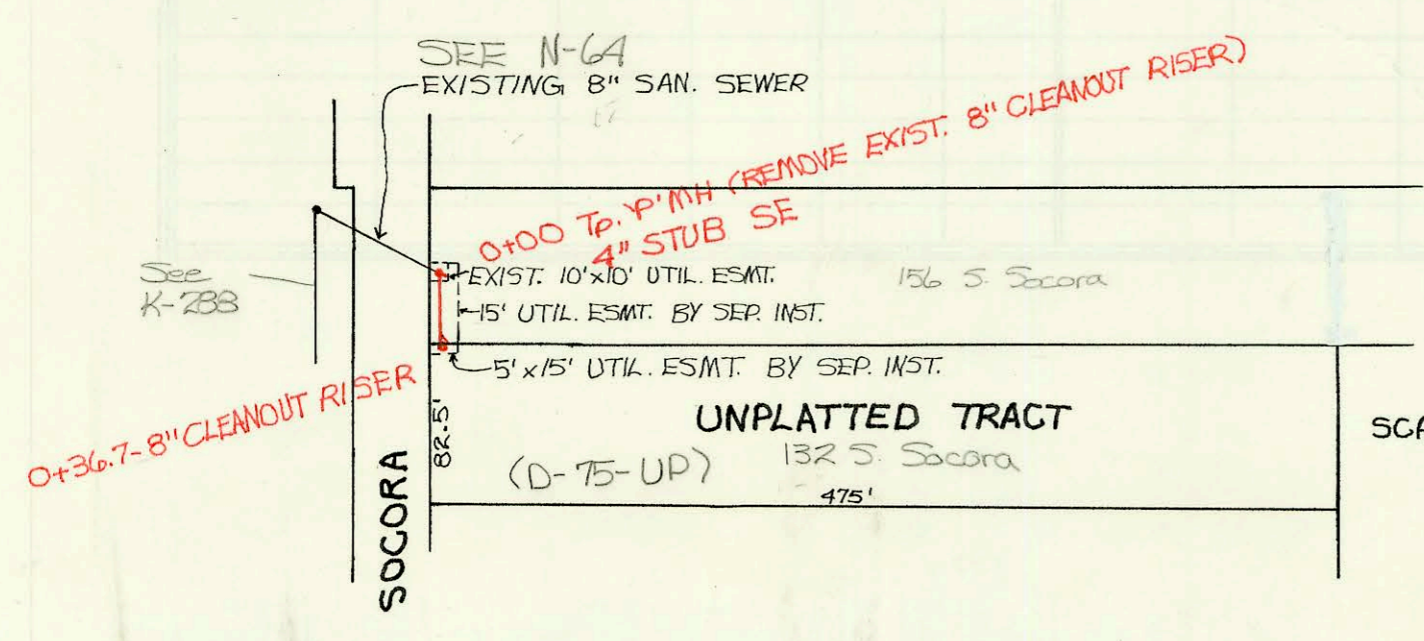 SEE N-64
EXISTING 8" SAN. SEWER
0+00 Tp. 'P' MH (REMOVE EXIST. 8" CLEANOUT RISER)
4" STUB SE
See
K-288
EXIST. 10'x10' UTIL. ESMT.
156 S. Socora
15' UTIL. ESMT. BY SEP. INST.
5'x15' UTIL. ESMT. BY SEP. INST.
0+36.7-8" CLEANOUT RISER
82.5'
UNPLATTED TRACT
132 S. Socora
(D-75-UP)
475'
SOCORA